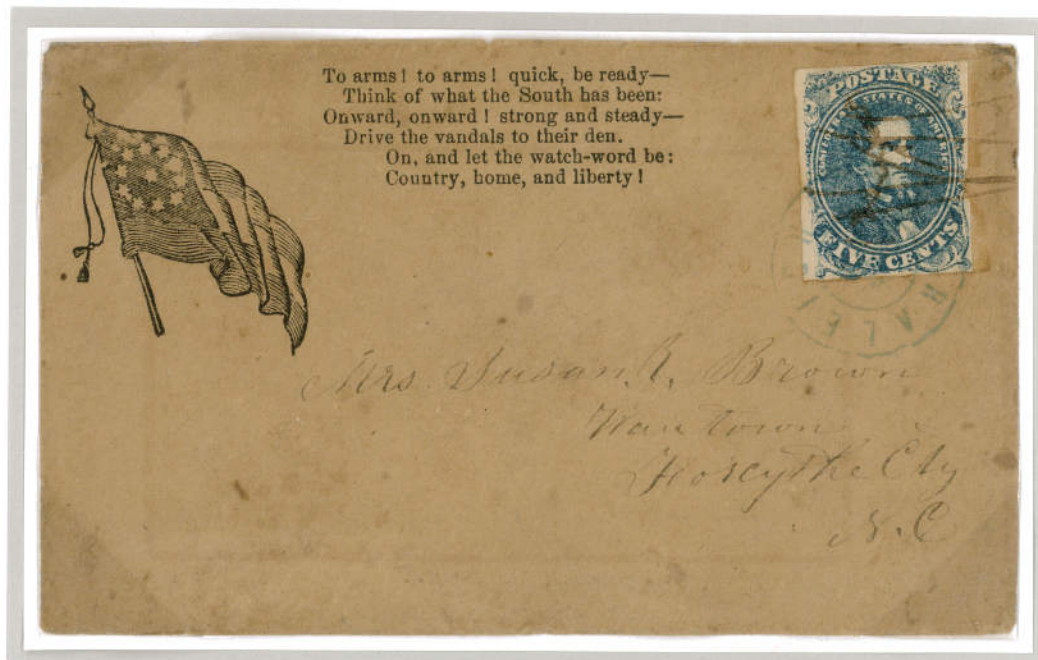 To arms! to arms! quick, be ready—
Think of what the South has been:
Onward, onward! strong and steady—
Drive the vandals to their den.
On, and let the watch-word be:
Country, home, and liberty!
POSTAGE
CONFEDERATE STATES OF AMERICA
FIVE CENTS
RALEI
Mrs. Susan Brown
town
Forsythe Cty
N.C